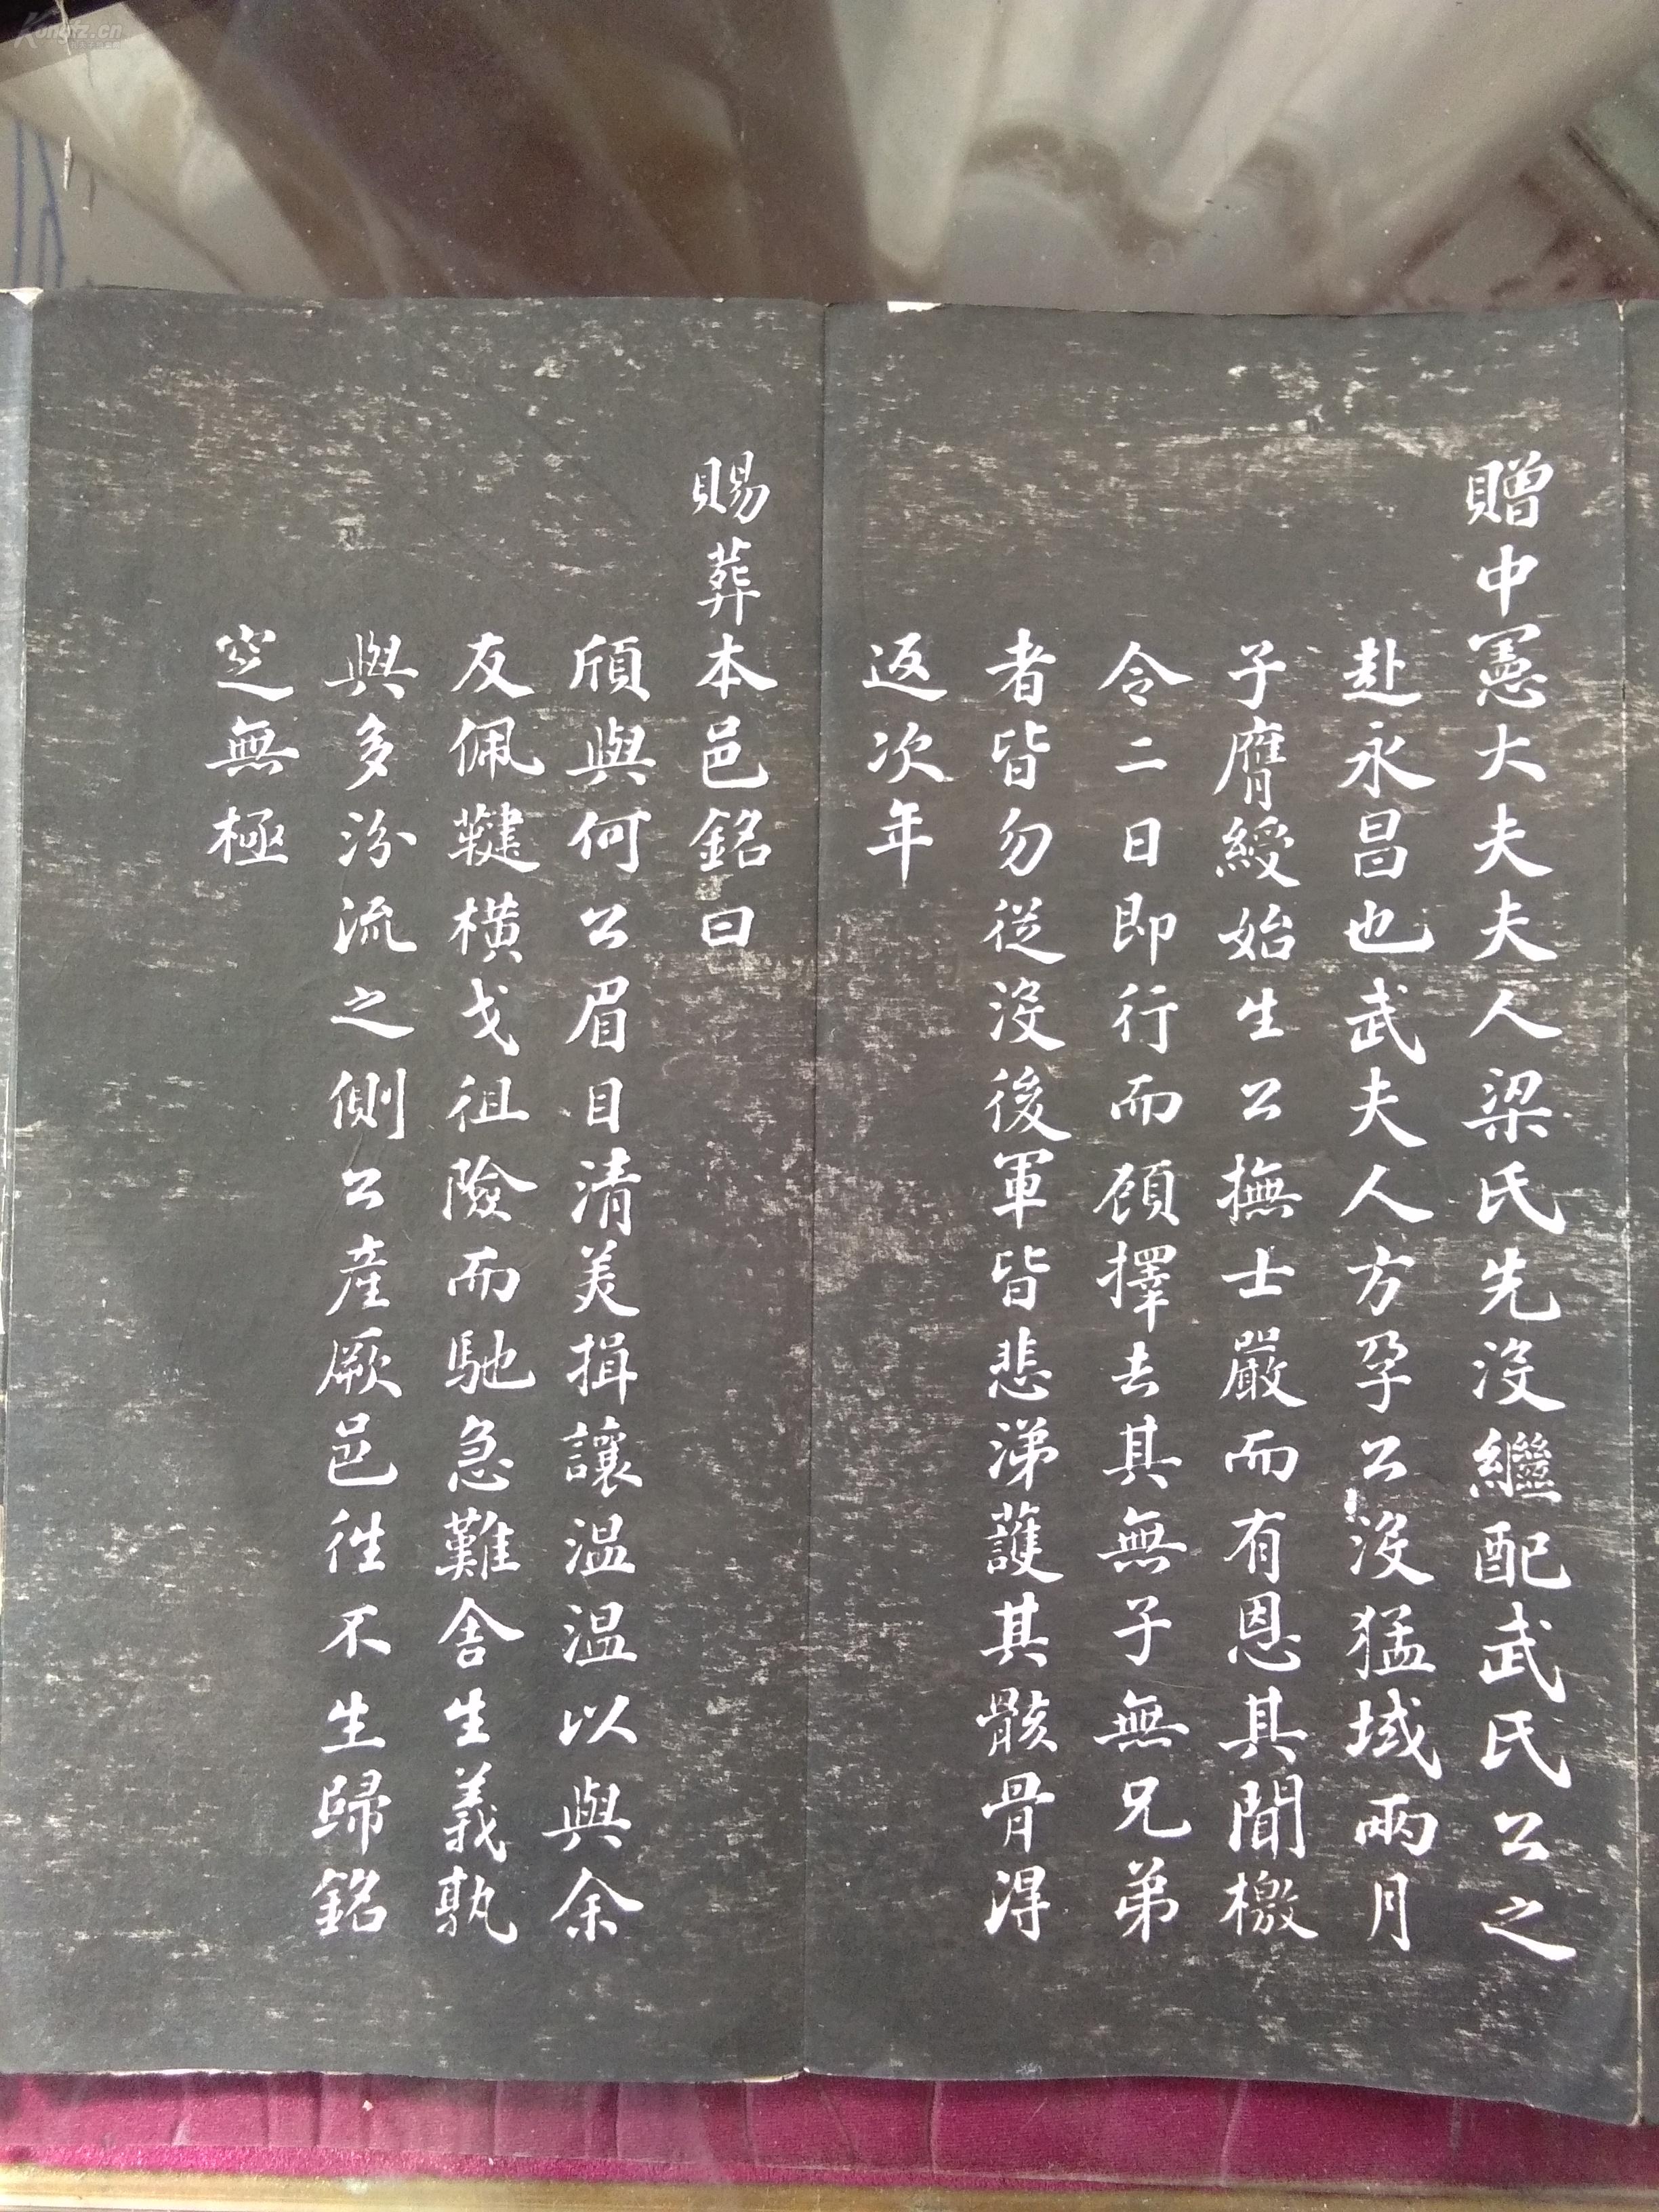 贈中憲大夫夫人梁氏先沒繼配武氏公之
赴永昌也武夫人方孕公沒猛域兩月
子膺綬始生公撫士嚴而有恩其聞檄
令二日即行而顧擇去其無子無兄弟
者皆勿從沒後軍皆悲涕護其骸骨得
返次年
賜葬本邑銘曰
頎與何公眉目清美揖讓温温以與余
友佩鞬橫戈徂險而馳急難舍生義孰
與多汾流之側公產厥邑徃不生歸銘
窆無極
Kongfz.cn